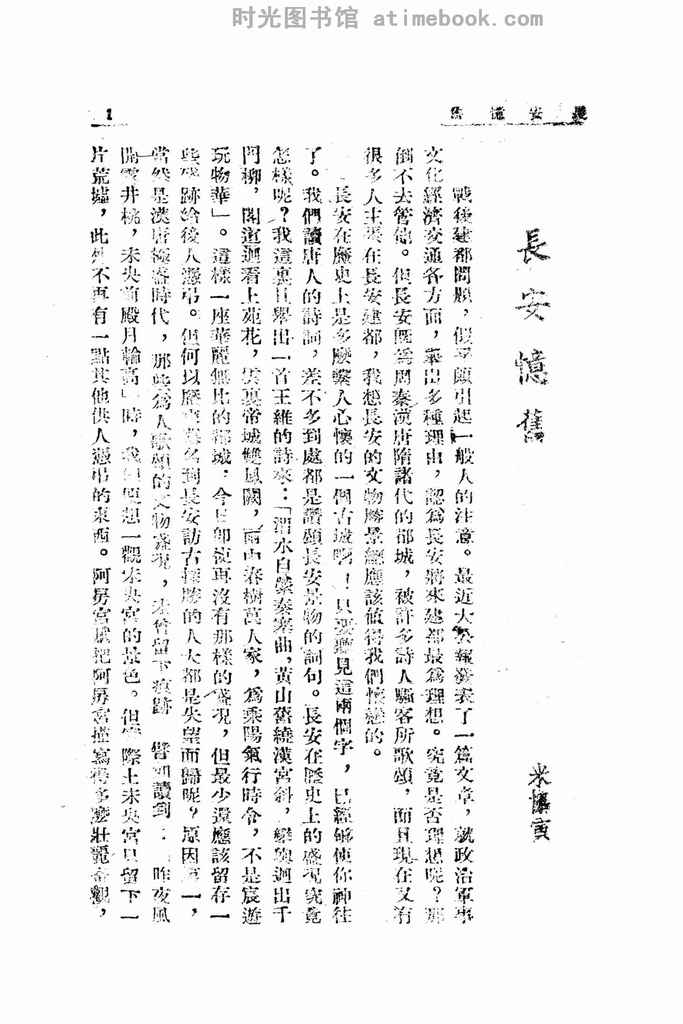 时光图书馆 atimebook.com
長安憶舊
1
長安憶舊
米懷寅
戰後建都問題，似乎頗引起一般人的注意。最近大公報發表了一篇文章，就政治軍事
文化經濟交通各方面，舉出多種理由，認為長安將來建都最為理想。究竟是否理想呢？那
倒不去管他。但長安既為周秦漢唐隋諸代的都城，被許多詩人騷客所歌頌，而且現在又有
很多人主張在長安建都，我想長安的文物勝景總應該值得我們懷戀的。
長安在歷史上是多麼繫人心懷的一個古城啊！只要聽見這兩個字，已經够使你神往
了。我們讀唐人的詩詞，差不多到處都是讚頌長安景物的詞句。長安在歷史上的盛況究竟
怎樣呢？我這裏且舉出一首王維的詩來：「渭水自縈秦塞曲，黃山舊繞漢宮斜，鑾輿迥出千
門柳，閣道迴看上苑花，雲裏帝城雙鳳闕，雨中春樹萬人家，為乘陽氣行時令，不是宸遊
玩物華」。這樣一座華麗無比的都城，今日即使再沒有那樣的盛況，但最少還應該留存一
些殘跡給後人憑弔。但何以歷來慕名到長安訪古探勝的人大都是失望而歸呢？原因第一，
當然是漢唐極盛時代，那些為人歌頌的文物盛況，未曾留下痕跡 譬如讀到：「昨夜風
開露井桃，未央前殿月輪高」時，我們便想一觀未央宮的景色。但實際上未央宮只留下一
片荒墟，此外不再有一點其他供人憑弔的東西。阿房宮賦把阿房宮描寫得多麼壯麗奇觀，